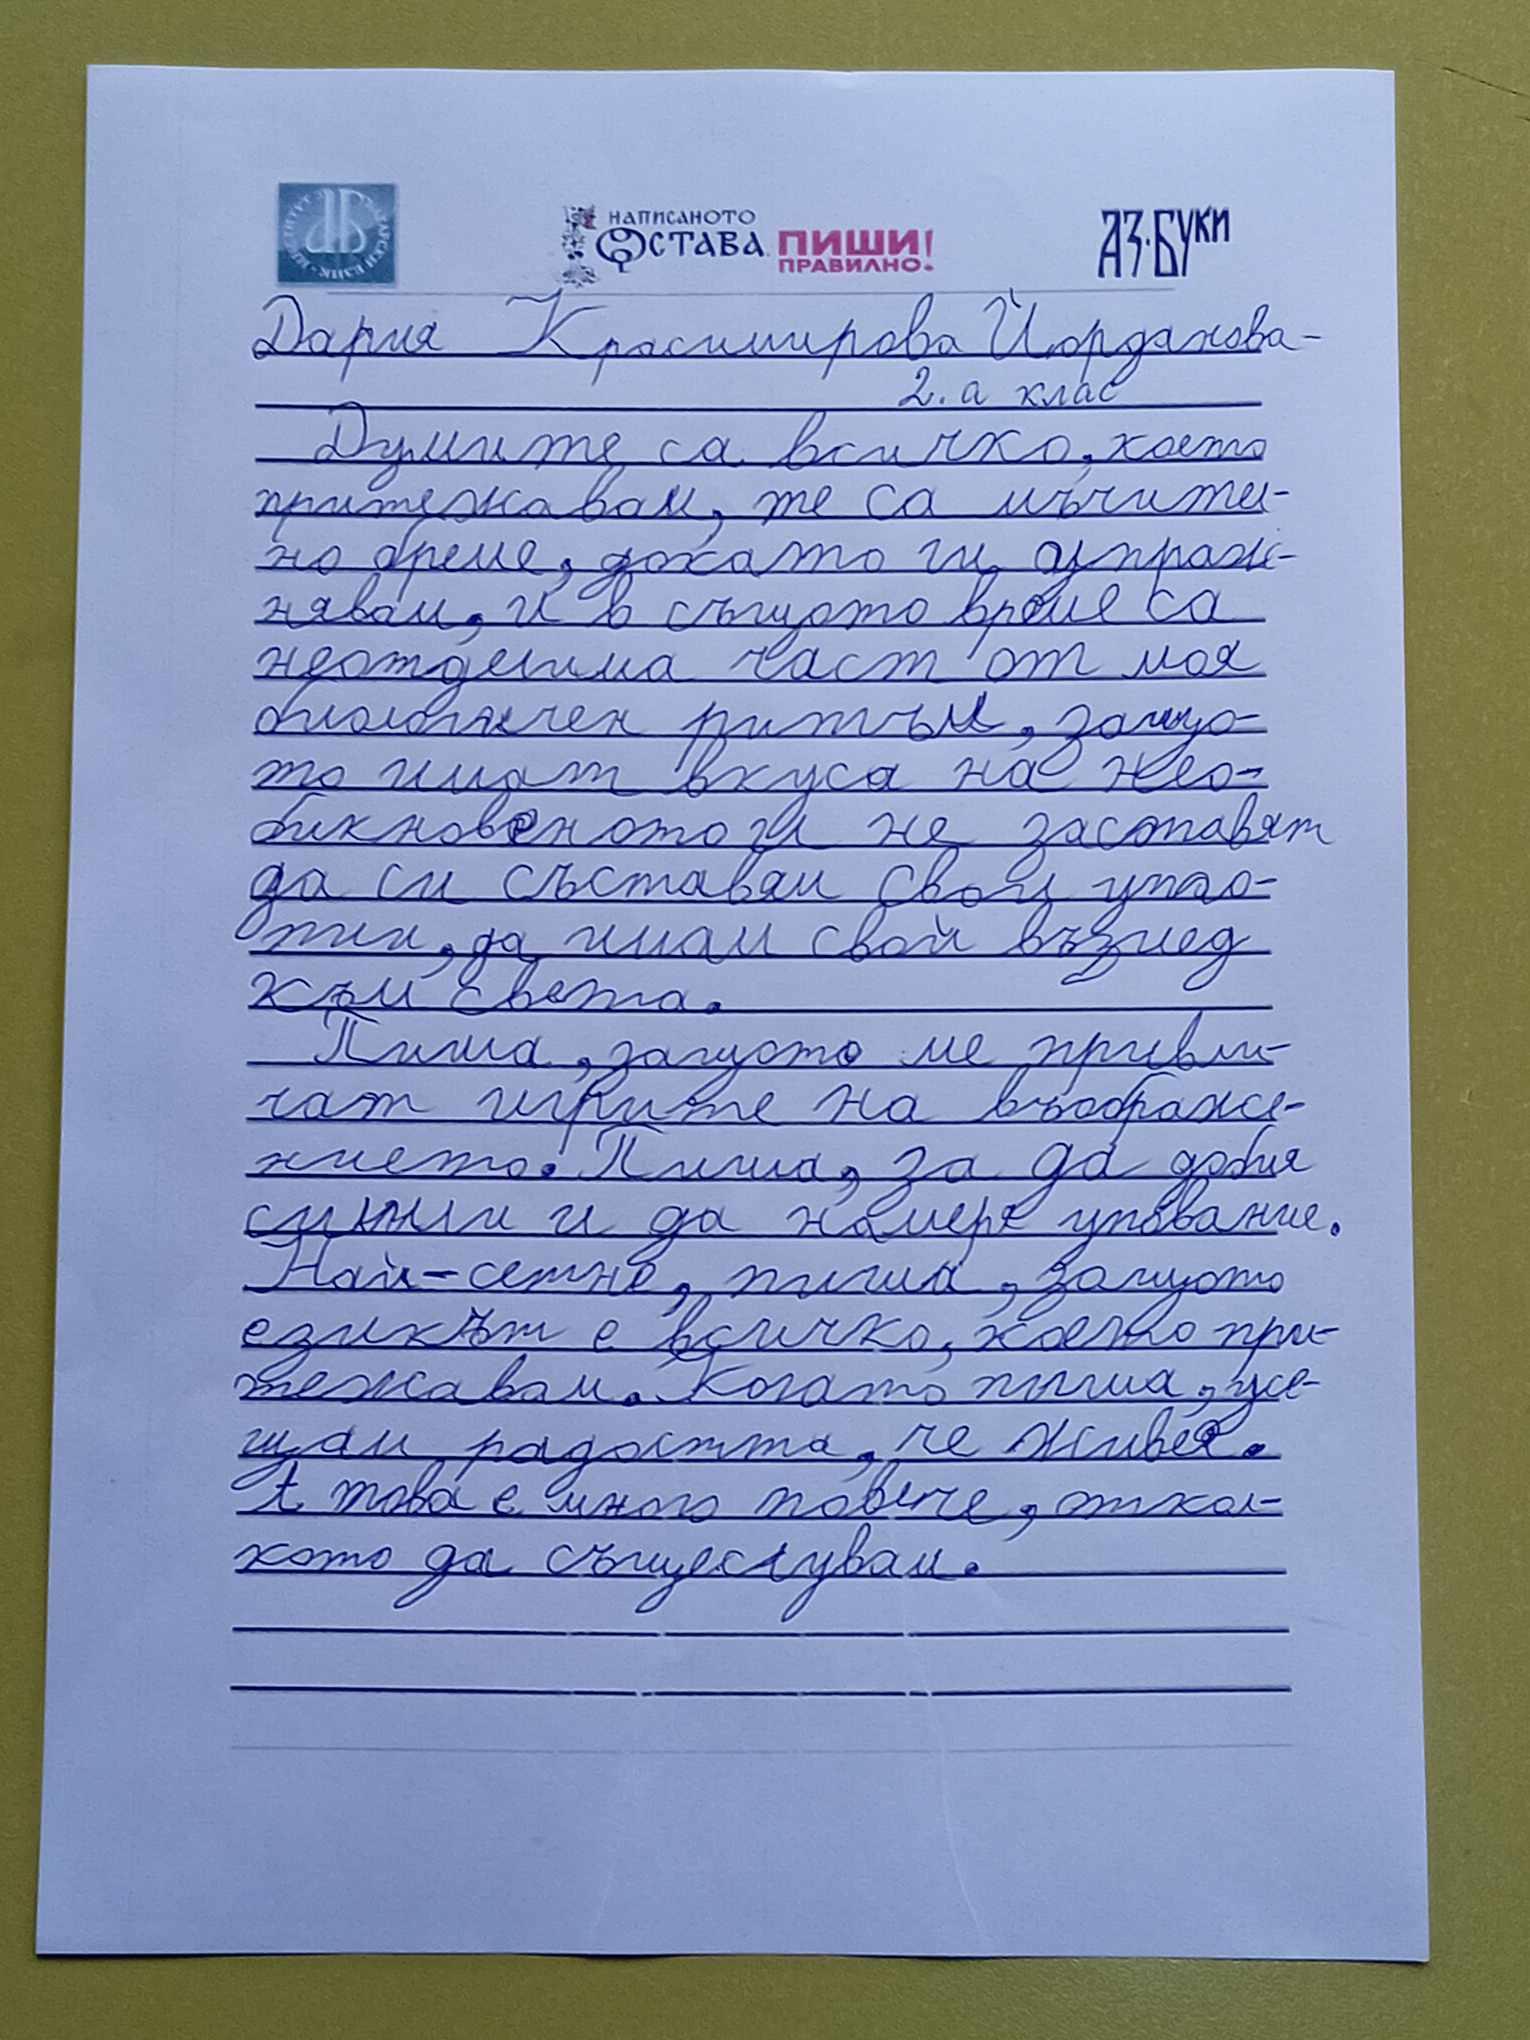 ИНСТИТУТ ЗА БЪЛГАРСКИ ЕЗИК
НАПИСАНОТО
ОСТАВА. ПИШИ
ПРАВИЛНО!
АЗ·БУКИ
Дария Красимирова Йорданова-
2. а клас
Думите са всичко, което
притежавам, те са мъчител-
но бреме, докато ги упраж-
нявам, и в същото време са
неотделима част от моя
биологичен ритъм, защо-
то имат вкуса на нео-
бикновеното и ме заставят
да си съставям свои упо-
тии, да имам свой възглед
към света.
Пиша, защото ме привли-
чат игрите на въображе-
нието. Пиша, за да добия
сили и да намеря упование.
Най-сетне, пиша, защото
езикът е всичко, което при-
тежавам. Когато пиша, усе-
щам радостта, че живея.
А това е много повече, откол-
кото да съществувам.